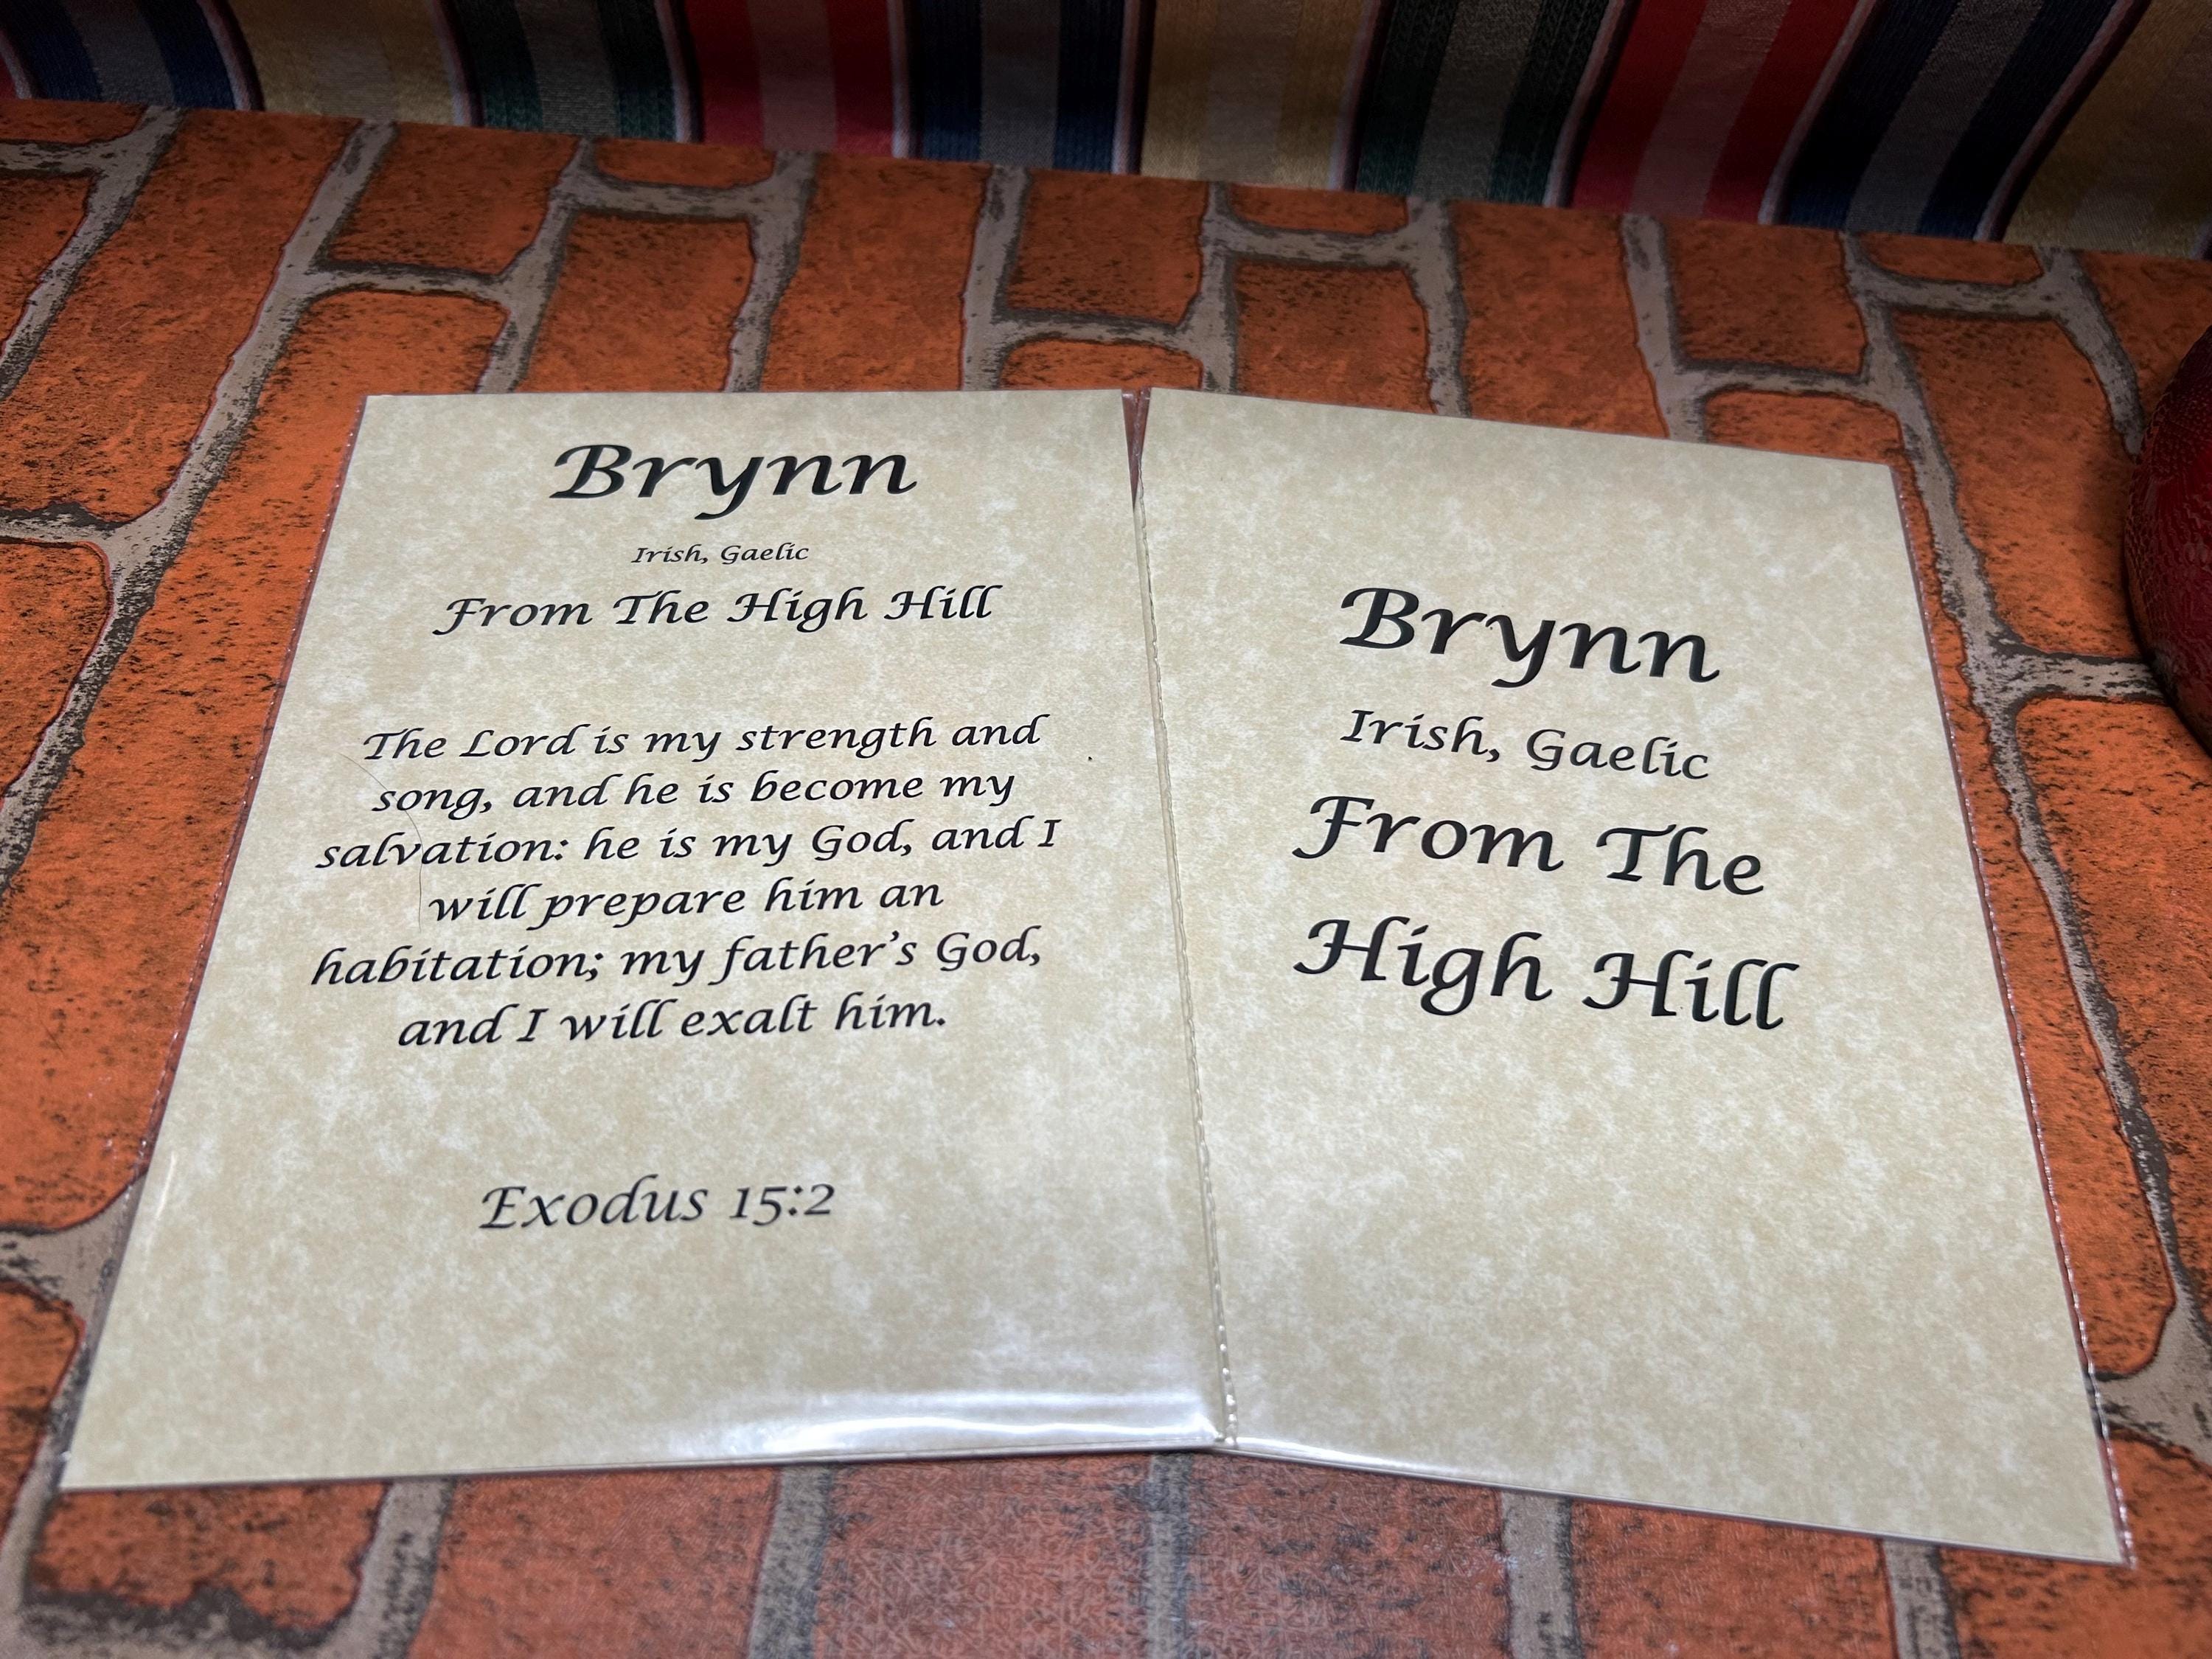 Brynn
Irish, Gaelic
From The High Hill
The Lord is my strength and
song, and he is become my
salvation: he is my God, and I
will prepare him an
habitation; my father's God,
and I will exalt him.
Exodus 15:2
Brynn
Irish, Gaelic
From The
High Hill